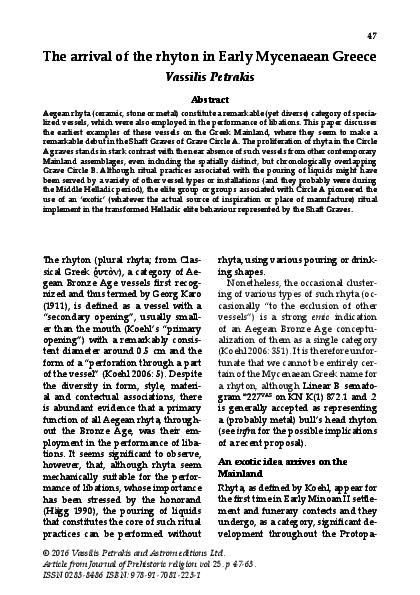 47
The arrival of the rhyton in Early Mycenaean Greece
Vassilis Petrakis
Abstract
Aegean rhyta (ceramic, stone or metal) constitute a remarkable (yet diverse) category of specia-
lized vessels, which were also employed in the performance of libations. This paper discusses
the earliest examples of these vessels on the Greek Mainland, where they seem to make a
remarkable debut in the Shaft Graves of Grave Circle A. The proliferation of rhyta in the Circle
A graves stands in stark contrast with the near absence of such vessels from other contemporary
Mainland assemblages, even including the spatially distinct, but chronologically overlapping
Grave Circle B. Although ritual practices associated with the pouring of liquids might have
been served by a variety of other vessel types or installations (and they probably were during
the Middle Helladic period), the elite group or groups associated with Circle A pioneered the
use of an ‘exotic’ (whatever the actual source of inspiration or place of manufacture) ritual
implement in the transformed Helladic elite behaviour represented by the Shaft Graves.
The rhyton (plural rhyta; from Clas-
sical Greek ῥυτόν), a category of Ae-
gean Bronze Age vessels first recog-
nized and thus termed by Georg Karo
(1911), is defined as a vessel with a
“secondary opening”, usually small-
er than the mouth (Koehl’s “primary
opening”) with a remarkably consis-
tent diameter around 0.5 cm and the
form of a “perforation through a part
of the vessel” (Koehl 2006: 5). Despite
the diversity in form, style, materi-
al and contextual associations, there
is abundant evidence that a primary
function of all Aegean rhyta, through-
out the Bronze Age, was their em-
ployment in the performance of liba-
tions. It seems significant to observe,
however, that, although rhyta seem
mechanically suitable for the perfor-
mance of libations, whose importance
has been stressed by the honorand
(Hägg 1990), the pouring of liquids
that constitutes the core of such ritual
practices can be performed without
rhyta, using various pouring or drink-
ing shapes.
Nonetheless, the occasional cluster-
ing of various types of such rhyta (oc-
casionally “to the exclusion of other
vessels”) is a strong emic indication
of an Aegean Bronze Age conceptu-
alization of them as a single category
(Koehl 2006: 351). It is therefore unfor-
tunate that we cannot be entirely cer-
tain of the Mycenaean Greek name for
a rhyton, although Linear B semato-
gram *227VAS on KN K(1) 872.1 and .2
is generally accepted as representing
a (probably metal) bull’s head rhyton
(see infra for the possible implications
of a recent proposal).
An exotic idea arrives on the
Mainland
Rhyta, as defined by Koehl, appear for
the first time in Early Minoan II settle-
ment and funerary contexts and they
undergo, as a category, significant de-
velopment throughout the Protopa-
© 2016 Vassilis Petrakis and Astrom editions Ltd.
Article from Journal of Prehistoric religion vol 25. p 47-63.
ISSN 0283-8486 ISBN: 978-91-7081-223-1